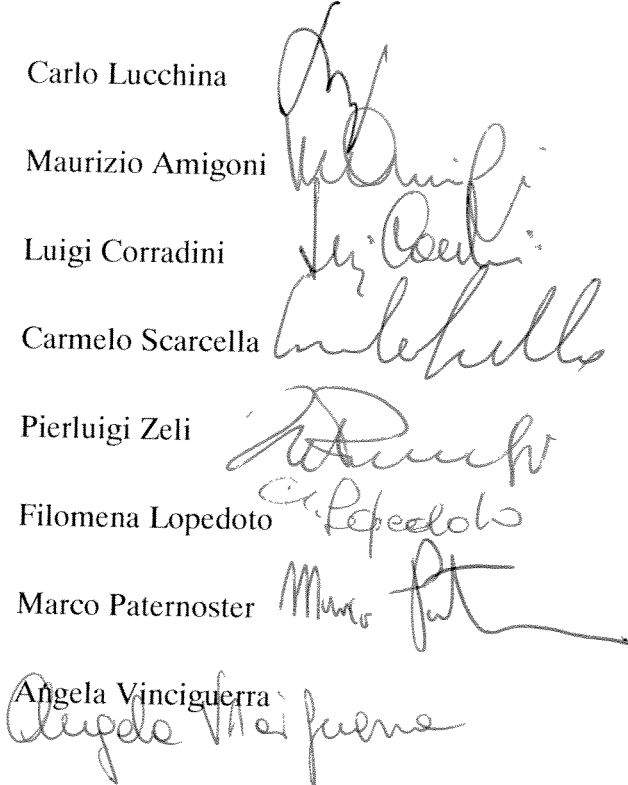 Carlo Lucchina
Maurizio Amigoni
Luigi Corradini
Carmelo Scarcella
Pierluigi Zeli
Filomena Lopedoto Lopedoto
Marco Paternoster Marco
Angela Vinciguerra
Angela Vinciguerra